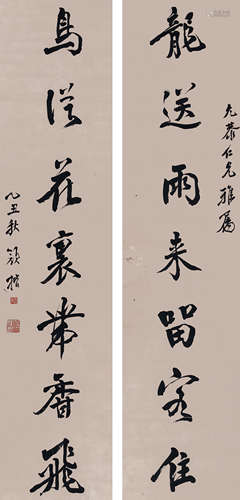 仁兄雅屬
龍送雨来留客住
鳥從花裏帶香飛
乙丑秋